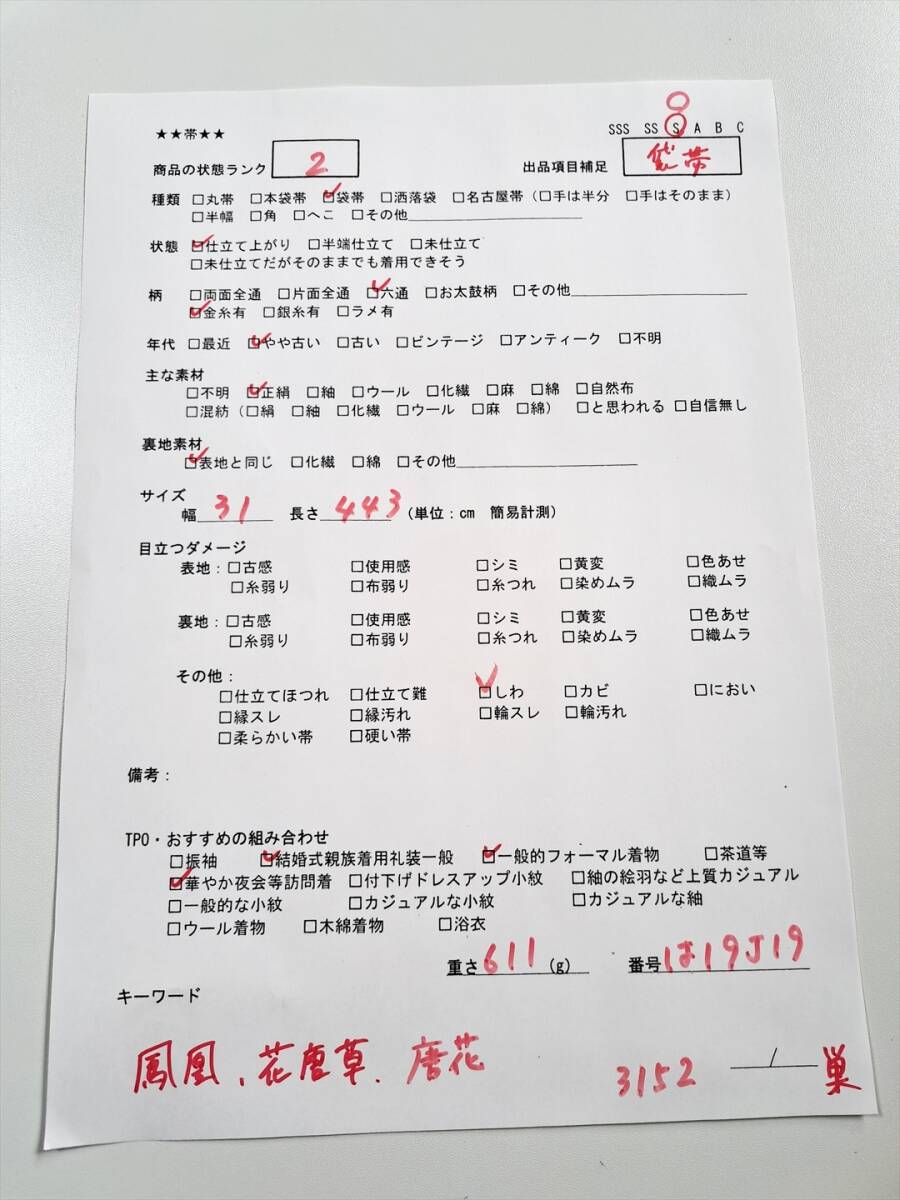 ★★帯★★ SSS SS S A B C
商品の状態ランク 2 出品項目補足 袋帯
種類 □丸帯 □本袋帯 ☑袋帯 □洒落袋 □名古屋帯（□手は半分 □手はそのまま）
□半幅 □角 □へこ □その他
状態 ☑仕立て上がり □半端仕立て □未仕立て
□未仕立てだがそのままでも着用できそう
柄 □両面全通 □片面全通 ☑六通 □お太鼓柄 □その他
☑金糸有 □銀糸有 □ラメ有
年代 □最近 ☑やや古い □古い □ビンテージ □アンティーク □不明
主な素材
□不明 ☑正絹 □紬 □ウール □化繊 □麻 □綿 □自然布
□混紡（□絹 □紬 □化繊 □ウール □麻 □綿） □と思われる □自信無し
裏地素材
☑表地と同じ □化繊 □綿 □その他
サイズ
幅 31 長さ 443 （単位：cm 簡易計測）
目立つダメージ
表地：□古感 □使用感 □シミ □黄変 □色あせ
□糸弱り □布弱り □糸つれ □染めムラ □織ムラ
裏地：□古感 □使用感 □シミ □黄変 □色あせ
□糸弱り □布弱り □糸つれ □染めムラ □織ムラ
その他：
□仕立てほつれ □仕立て難 ☑しわ □カビ □におい
□縁スレ □縁汚れ □輪スレ □輪汚れ
□柔らかい帯 □硬い帯
備考：
TPO・おすすめの組み合わせ
□振袖 ☑結婚式親族着用礼装一般 ☑一般的フォーマル着物 □茶道等
☑華やか夜会等訪問着 □付下げドレスアップ小紋 □紬の絵羽など上質カジュアル
□一般的な小紋 □カジュアルな小紋 □カジュアルな紬
□ウール着物 □木綿着物 □浴衣
重さ 611 (g) 番号 は19J19
キーワード
鳳凰、花唐草、唐花
3152 / 巣